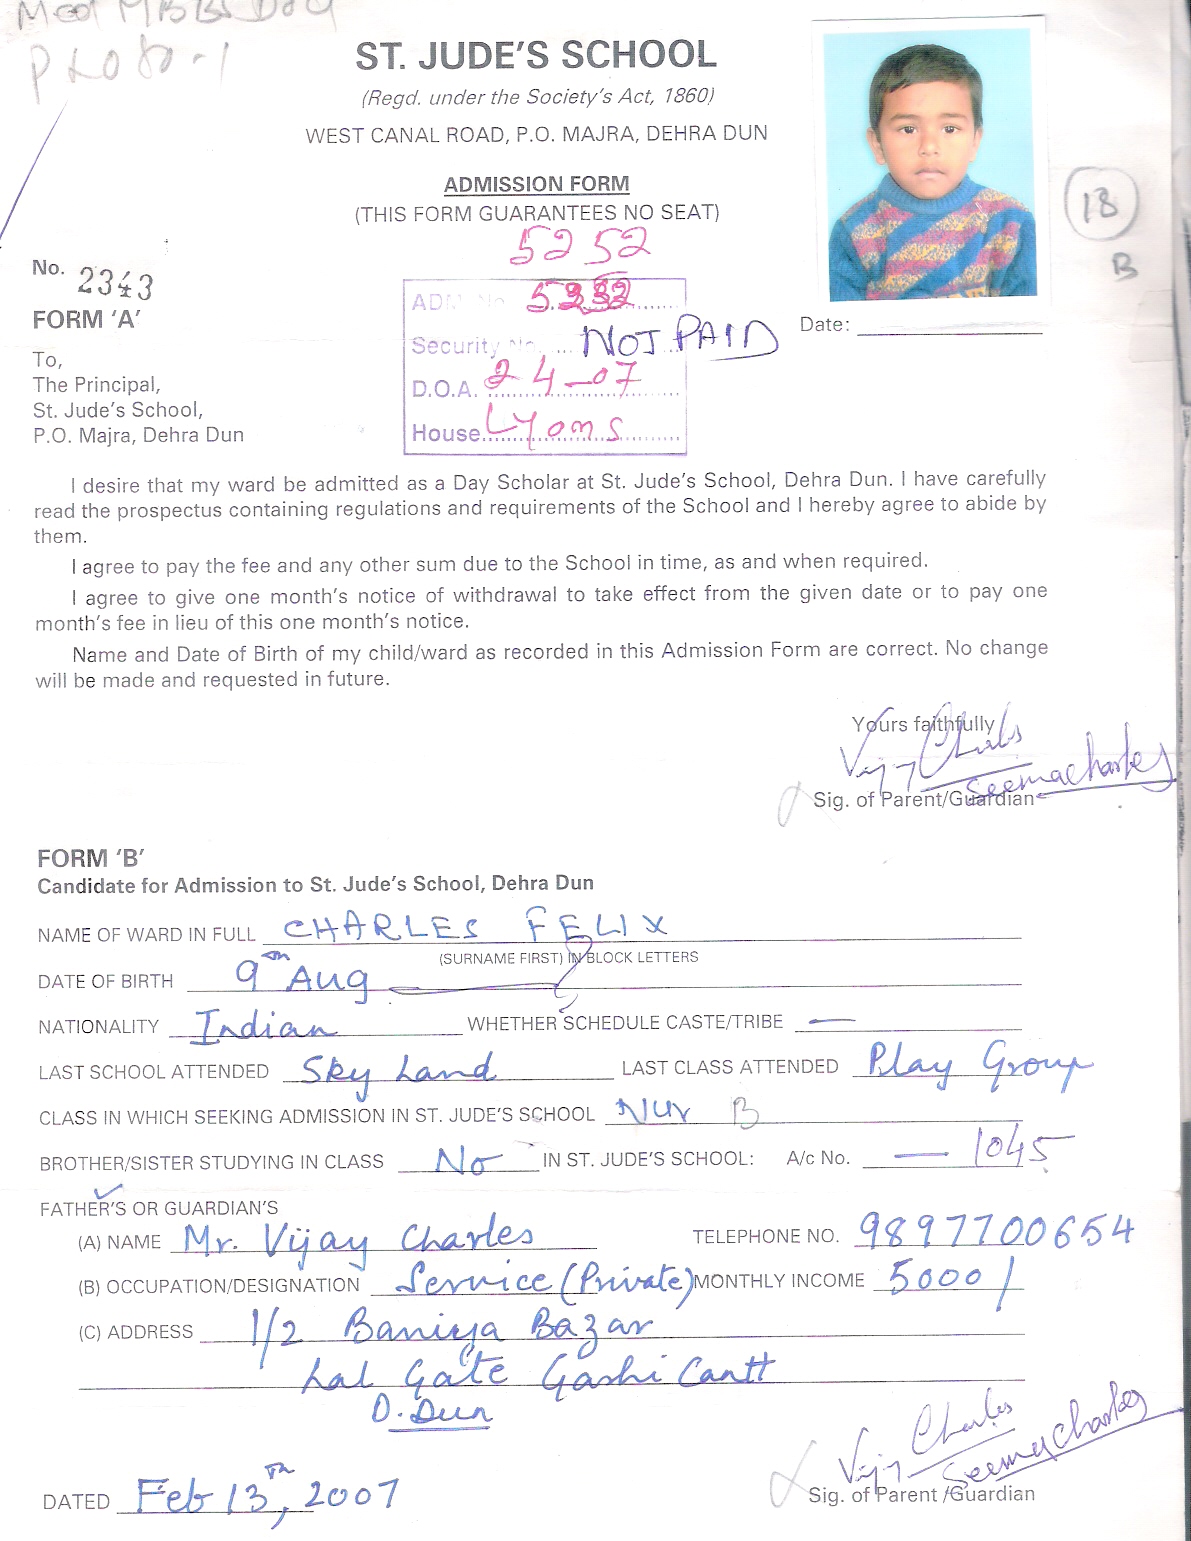 ST. JUDE'S SCHOOL
(Regd. under the Society's Act, 1860)
WEST CANAL ROAD, P.O. MAJRA, DEHRA DUN
ADMISSION FORM
(THIS FORM GUARANTEES NO SEAT)
5252
18
B
No. 2343
ADM No. 5252
FORM 'A'
Security No. ... NOT PAID
Date:
To,
The Principal,
D.O.A. 2 4-07
St. Jude's School,
P.O. Majra, Dehra Dun
House Lyons
I desire that my ward be admitted as a Day Scholar at St. Jude's School, Dehra Dun. I have carefully
read the prospectus containing regulations and requirements of the School and I hereby agree to abide by
them.
I agree to pay the fee and any other sum due to the School in time, as and when required.
I agree to give one month's notice of withdrawal to take effect from the given date or to pay one
month's fee in lieu of this one month's notice.
Name and Date of Birth of my child/ward as recorded in this Admission Form are correct. No change
will be made and requested in future.
Yours faithfully
Vijay Charles
Seema Charles
Sig. of Parent/Guardian
FORM 'B'
Candidate for Admission to St. Jude's School, Dehra Dun
NAME OF WARD IN FULL CHARLES FELIX
(SURNAME FIRST) IN BLOCK LETTERS
DATE OF BIRTH 9th Aug
NATIONALITY Indian WHETHER SCHEDULE CASTE/TRIBE —
LAST SCHOOL ATTENDED Sky Land LAST CLASS ATTENDED Play Group
CLASS IN WHICH SEEKING ADMISSION IN ST. JUDE'S SCHOOL Nur B
BROTHER/SISTER STUDYING IN CLASS No IN ST. JUDE'S SCHOOL: A/c No. — 1045
FATHER'S OR GUARDIAN'S
(A) NAME Mr. Vijay Charles TELEPHONE NO. 9897700654
(B) OCCUPATION/DESIGNATION Service (Private) MONTHLY INCOME 5000/
(C) ADDRESS 1/2 Baniya Bazar
Lal Gate Gashi Cantt
D. Dun
Vijay Charles
Seema Charles
DATED Feb 13th, 2007
Sig. of Parent/Guardian